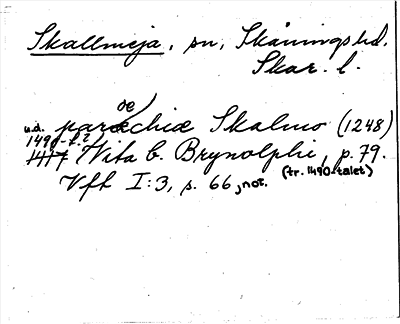 Skallmeja, sn, Skånings hd.
Skar. l.
oe
parochiæ Skalmo (1248)
u.d.
1490-t.?
1417 Vita b. Brynolphi, p. 79.
(tr. 1490-talet)
Vft I:3, s. 66, not.